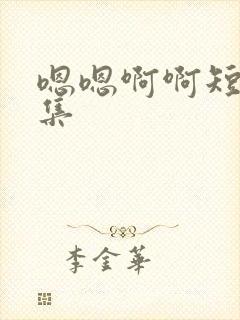 嗯嗯啊啊短
集
李金華